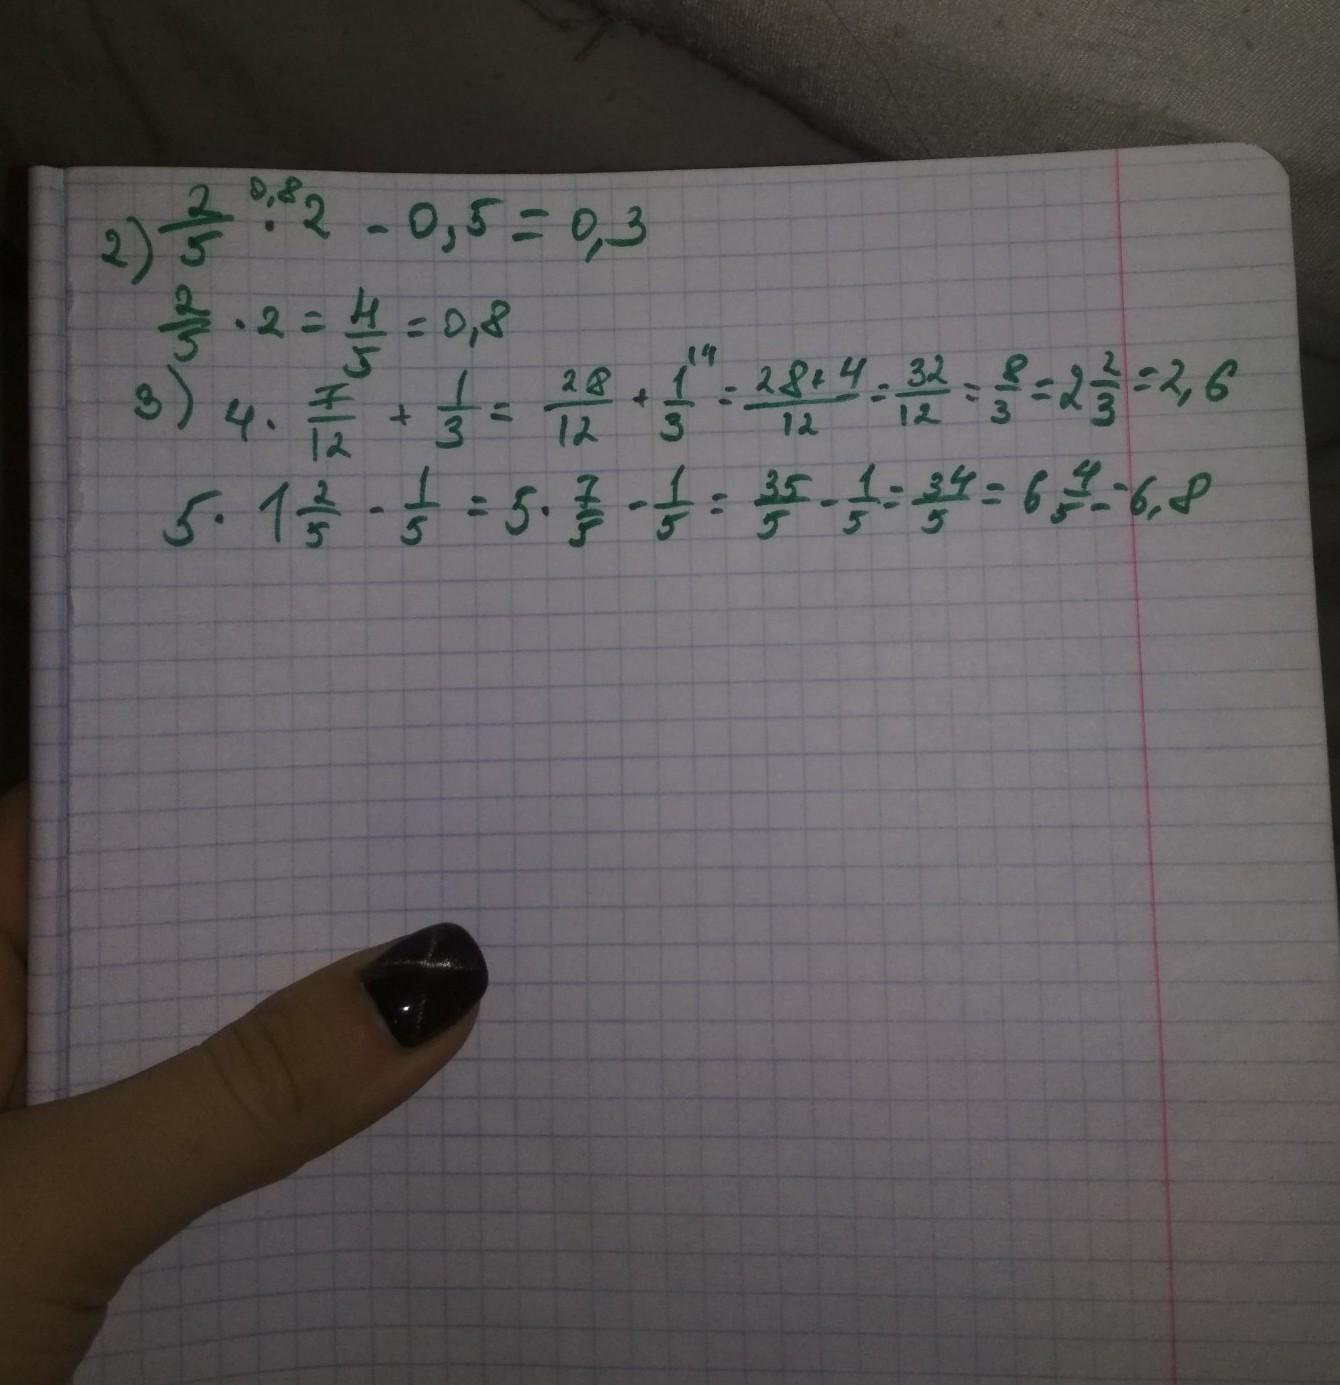 2) 2/5 · 2 0,8 - 0,5 = 0,3
2/5 · 2 = 4/5 = 0,8
3) 4 · 7/12 + 1/3 = 28/12 + 1/3 14 = 28+4/12 = 32/12 = 8/3 = 2 2/3 = 2,6
5 · 1 2/5 - 1/5 = 5 · 7/5 - 1/5 = 35/5 - 1/5 = 34/5 = 6 4/5 = 6,8